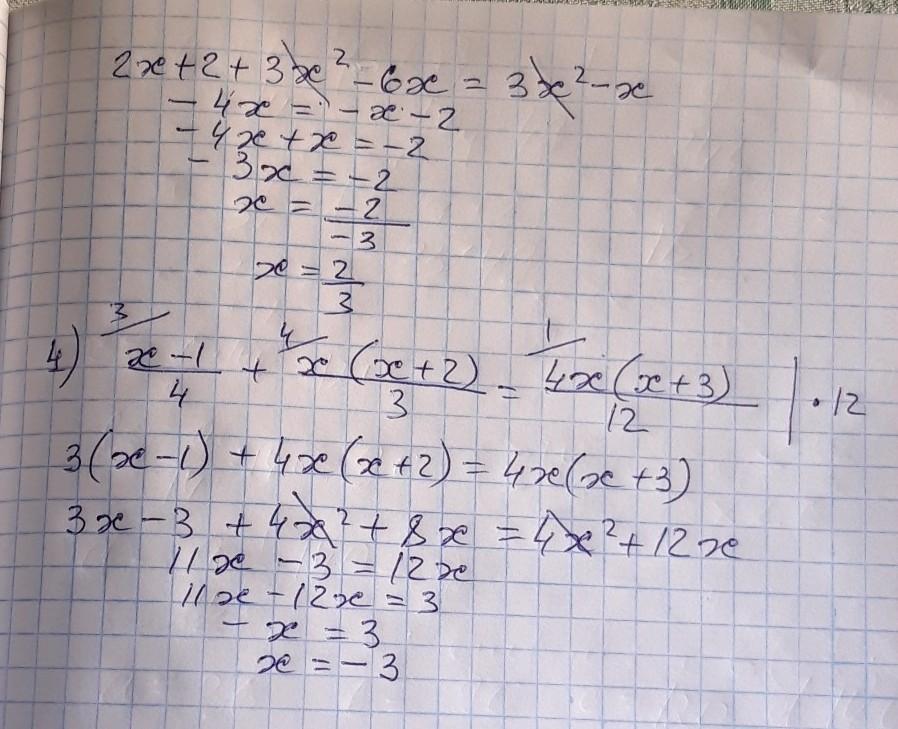 2x + 2 + 3x² - 6x = 3x² - x
- 4x = - x - 2
- 4x + x = -2
- 3x = -2
x = -2/-3
x = 2/3
4) 3/ (x - 1)/4 + 4/ x(x + 2)/3 = 1/ 4x(x + 3)/12 | · 12
3(x - 1) + 4x(x + 2) = 4x(x + 3)
3x - 3 + 4x² + 8x = 4x² + 12x
11x - 3 = 12x
11x - 12x = 3
- x = 3
x = - 3